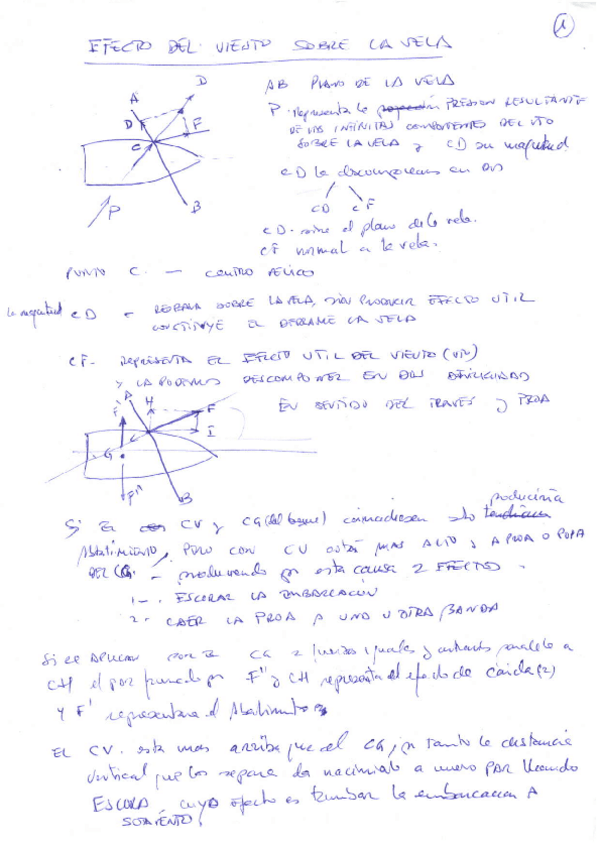 1
EFECTO DEL VIENTO SOBRE LA VELA
A
D
D
F
C
P
B
AB PLANO DE LA VELA
P. representa la PRESION RESULTANTE
DE LAS INFINITAS COMPONENTES DEL VTO
SOBRE LA VELA y CD su magnitud
CD la descomponemos en DOS
CD CF
CD. sigue el plano de la vela.
CF normal a la vela.
PUNTO C. — CENTRO VELICO
la magnitud CD - RESBALA SOBRE LA VELA, SIN PRODUCIR EFECTO UTIL
CONSTITUYE EL DERRAME LA VELA
CF- REPRESENTA EL EFECTO UTIL DEL VIENTO
Y LA PODEMOS DESCOMPONER EN DOS
EN SENTIDO DEL TRAVES y PROA
A
H
F'
F
I
C
G
F"
B
SI EL CV y CG (del buque) coincidiesen solo produciria
Abatimiento, PERO CON CV ESTÁ MAS ALTO y A PROA O POPA
DEL CG. - produciendo por esta causa 2 EFECTOS.
1-. ESCORAR LA EMBARCACIÓN
2- CAER LA PROA A UNA U OTRA BANDA
SI SE APLICAN POR EL CG 2 fuerzas iguales y contrarias paralela a
CH el par formado por F" y CH representa el efecto de caida (2)
Y F' representara el Abatimiento
EL CV. esta mas arriba que el CG, por tanto la distancia
vertical que los separa da nacimiento a nuevo PAR llamado
ESCORA, cuyo efecto es tumbar la embarcacion A
SOTAVENTO.